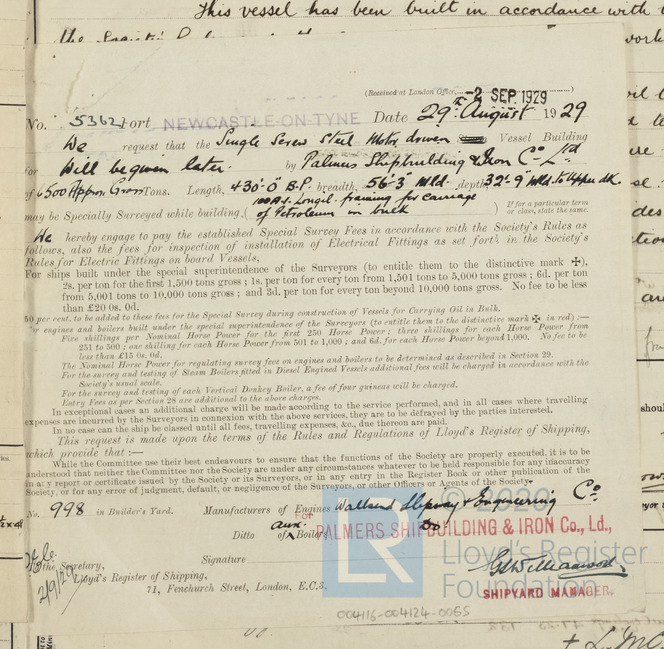 This vessel has been built in accordance with
the
(Received at London Office, 2 SEP. 1929)
No. 53621 Port NEWCASTLE-ON-TYNE Date 29th August 1929
We request that the Single Screw Steel Motor driven Vessel Building
for Will be given later. by Palmers Shipbuilding & Iron Co Ld
of 6500 Approx. Gross Tons. Length, 430'-0" B.P. breadth, 56'-3" Mld. depth 32'-9" Mld. to Upper dk.
100 A.1. Longl. framing for carriage
may be Specially Surveyed while building. ( of Petroleum in bulk ) If for a particular term or class, state the same.
We hereby engage to pay the established Special Survey Fees in accordance with the Society's Rules as
follows, also the fees for inspection of installation of Electrical Fittings as set forth in the Society's
Rules for Electric Fittings on board Vessels,
For ships built under the special superintendence of the Surveyors (to entitle them to the distinctive mark ✠).
2s. per ton for the first 1,500 tons gross ; 1s. per ton for every ton from 1,501 to 5,000 tons gross ; 6d. per ton
from 5,001 to 10,000 tons gross ; and 3d. per ton for every ton beyond 10,000 tons gross. No fee to be less
than £20 0s. 0d.
50 per cent. to be added to these fees for the Special Survey during construction of Vessels for Carrying Oil in Bulk.
For engines and boilers built under the special superintendence of the Surveyors (to entitle them to the distinctive mark ✠ in red) :—
Five shillings per Nominal Horse Power for the first 250 Horse Power ; three shillings for each Horse Power from
251 to 500 ; one shilling for each Horse Power from 501 to 1,000 ; and 6d. for each Horse Power beyond 1,000. No fee to be
less than £15 0s. 0d.
The Nominal Horse Power for regulating survey fees on engines and boilers to be determined as described in Section 29.
For the survey and testing of Steam Boilers fitted in Diesel Engined Vessels additional fees will be charged in accordance with the
Society's usual scale.
For the survey and testing of each Vertical Donkey Boiler, a fee of four guineas will be charged.
Entry Fees as per Section 28 are additional to the above charges.
In exceptional cases an additional charge will be made according to the service performed, and in all cases where travelling
expenses are incurred by the Surveyors in connection with the above services, they are to be defrayed by the parties interested.
In no case can the ship be classed until all fees, travelling expenses, &c., due thereon are paid.
This request is made upon the terms of the Rules and Regulations of Lloyd's Register of Shipping,
which provide that :—
While the Committee use their best endeavours to ensure that the functions of the Society are properly executed, it is to be
understood that neither the Committee nor the Society are under any circumstances whatever to be held responsible for any inaccuracy
in any report or certificate issued by the Society or its Surveyors, or in any entry in the Register Book or other publication of the
Society, or for any error of judgment, default, or negligence of the Surveyors, or other Officers or Agents of the Society.
No. 998 in Builder's Yard. Manufacturers of Engines Wallsend Slipway & Engineering Co.
Ditto of aux. Boilers Do
FOR PALMERS SHIPBUILDING & IRON Co., Ld.,
To the Secretary, Signature
Lloyd's Register of Shipping,
71, Fenchurch Street, London, E.C.3.
2/9/29
SHIPYARD MANAGER.
LR
Lloyd's Register
Foundation
004116-004124-0065